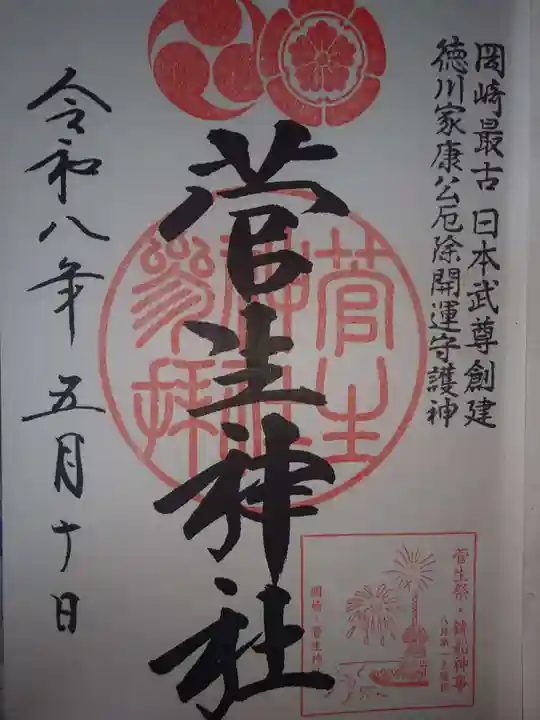 岡崎最古 日本武尊創建
徳川家康公厄除開運守護神
菅生神社
菅生
神社
参拝
令和八年五月十日
菅生祭・鉾船神事
岡崎・菅生神社